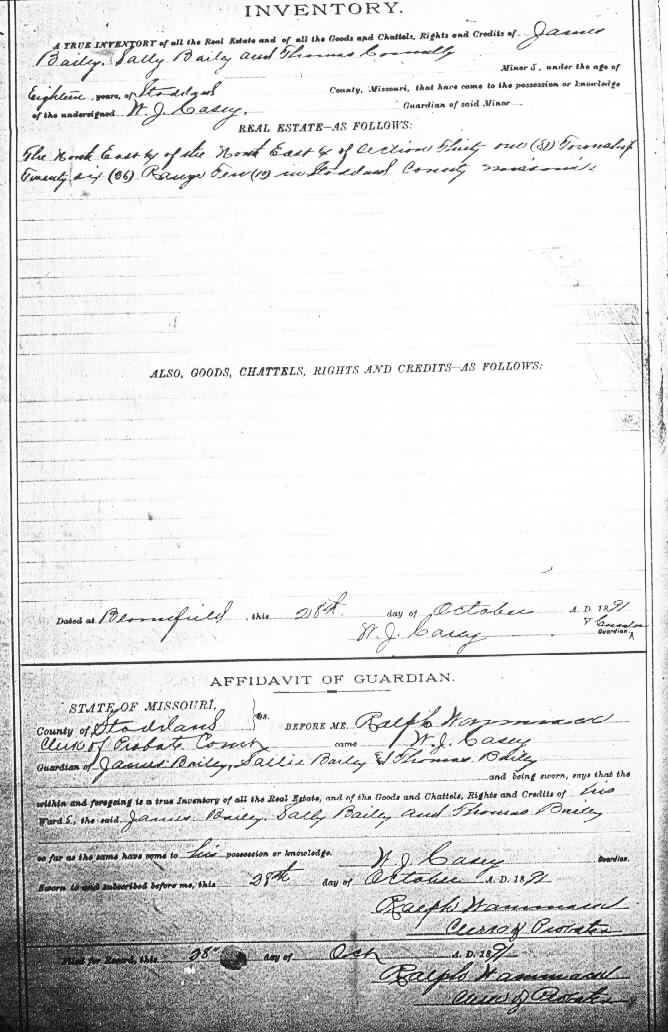 INVENTORY.
A TRUE INVENTORY of all the Real Estate and of all the Goods and Chattels, Rights and Credits of James
Baily, Sally Baily and Thomas Connelly
Minor S, under the age of
Eighteen years, of Stoddard County, Missouri, that have come to the possession or knowledge
of the undersigned W. J. Casey. Guardian of said Minor
REAL ESTATE—AS FOLLOWS:
The North East ¼ of the North East ¼ of Section Thirty one (31) Township
Twenty six (26) Range Ten (10) in Stoddard County Missouri.
ALSO, GOODS, CHATTELS, RIGHTS AND CREDITS—AS FOLLOWS:
Dated at Bloomfield, this 28th day of October A. D. 1891
W. J. Casey & Curator Guardian.
AFFIDAVIT OF GUARDIAN.
STATE OF MISSOURI,
County of Stoddard ss. BEFORE ME, Ralph Wammack
Clerk of Probate Court came W. J. Casey
Guardian of James Baily, Sallie Baily & Thomas Baily
and being sworn, says that the
within and foregoing is a true Inventory of all the Real Estate, and of the Goods and Chattels, Rights and Credits of his
Ward S, the said James Baily, Sally Baily and Thomas Baily
so far as the same have come to his possession or knowledge. W. J. Casey Guardian.
Sworn to and subscribed before me, this 28th day of October A. D. 1891
Ralph Wammack
Clerk of Probate
Filed for Record, this 28th day of Oct A. D. 1891
Ralph Wammack
Clerk of Probate